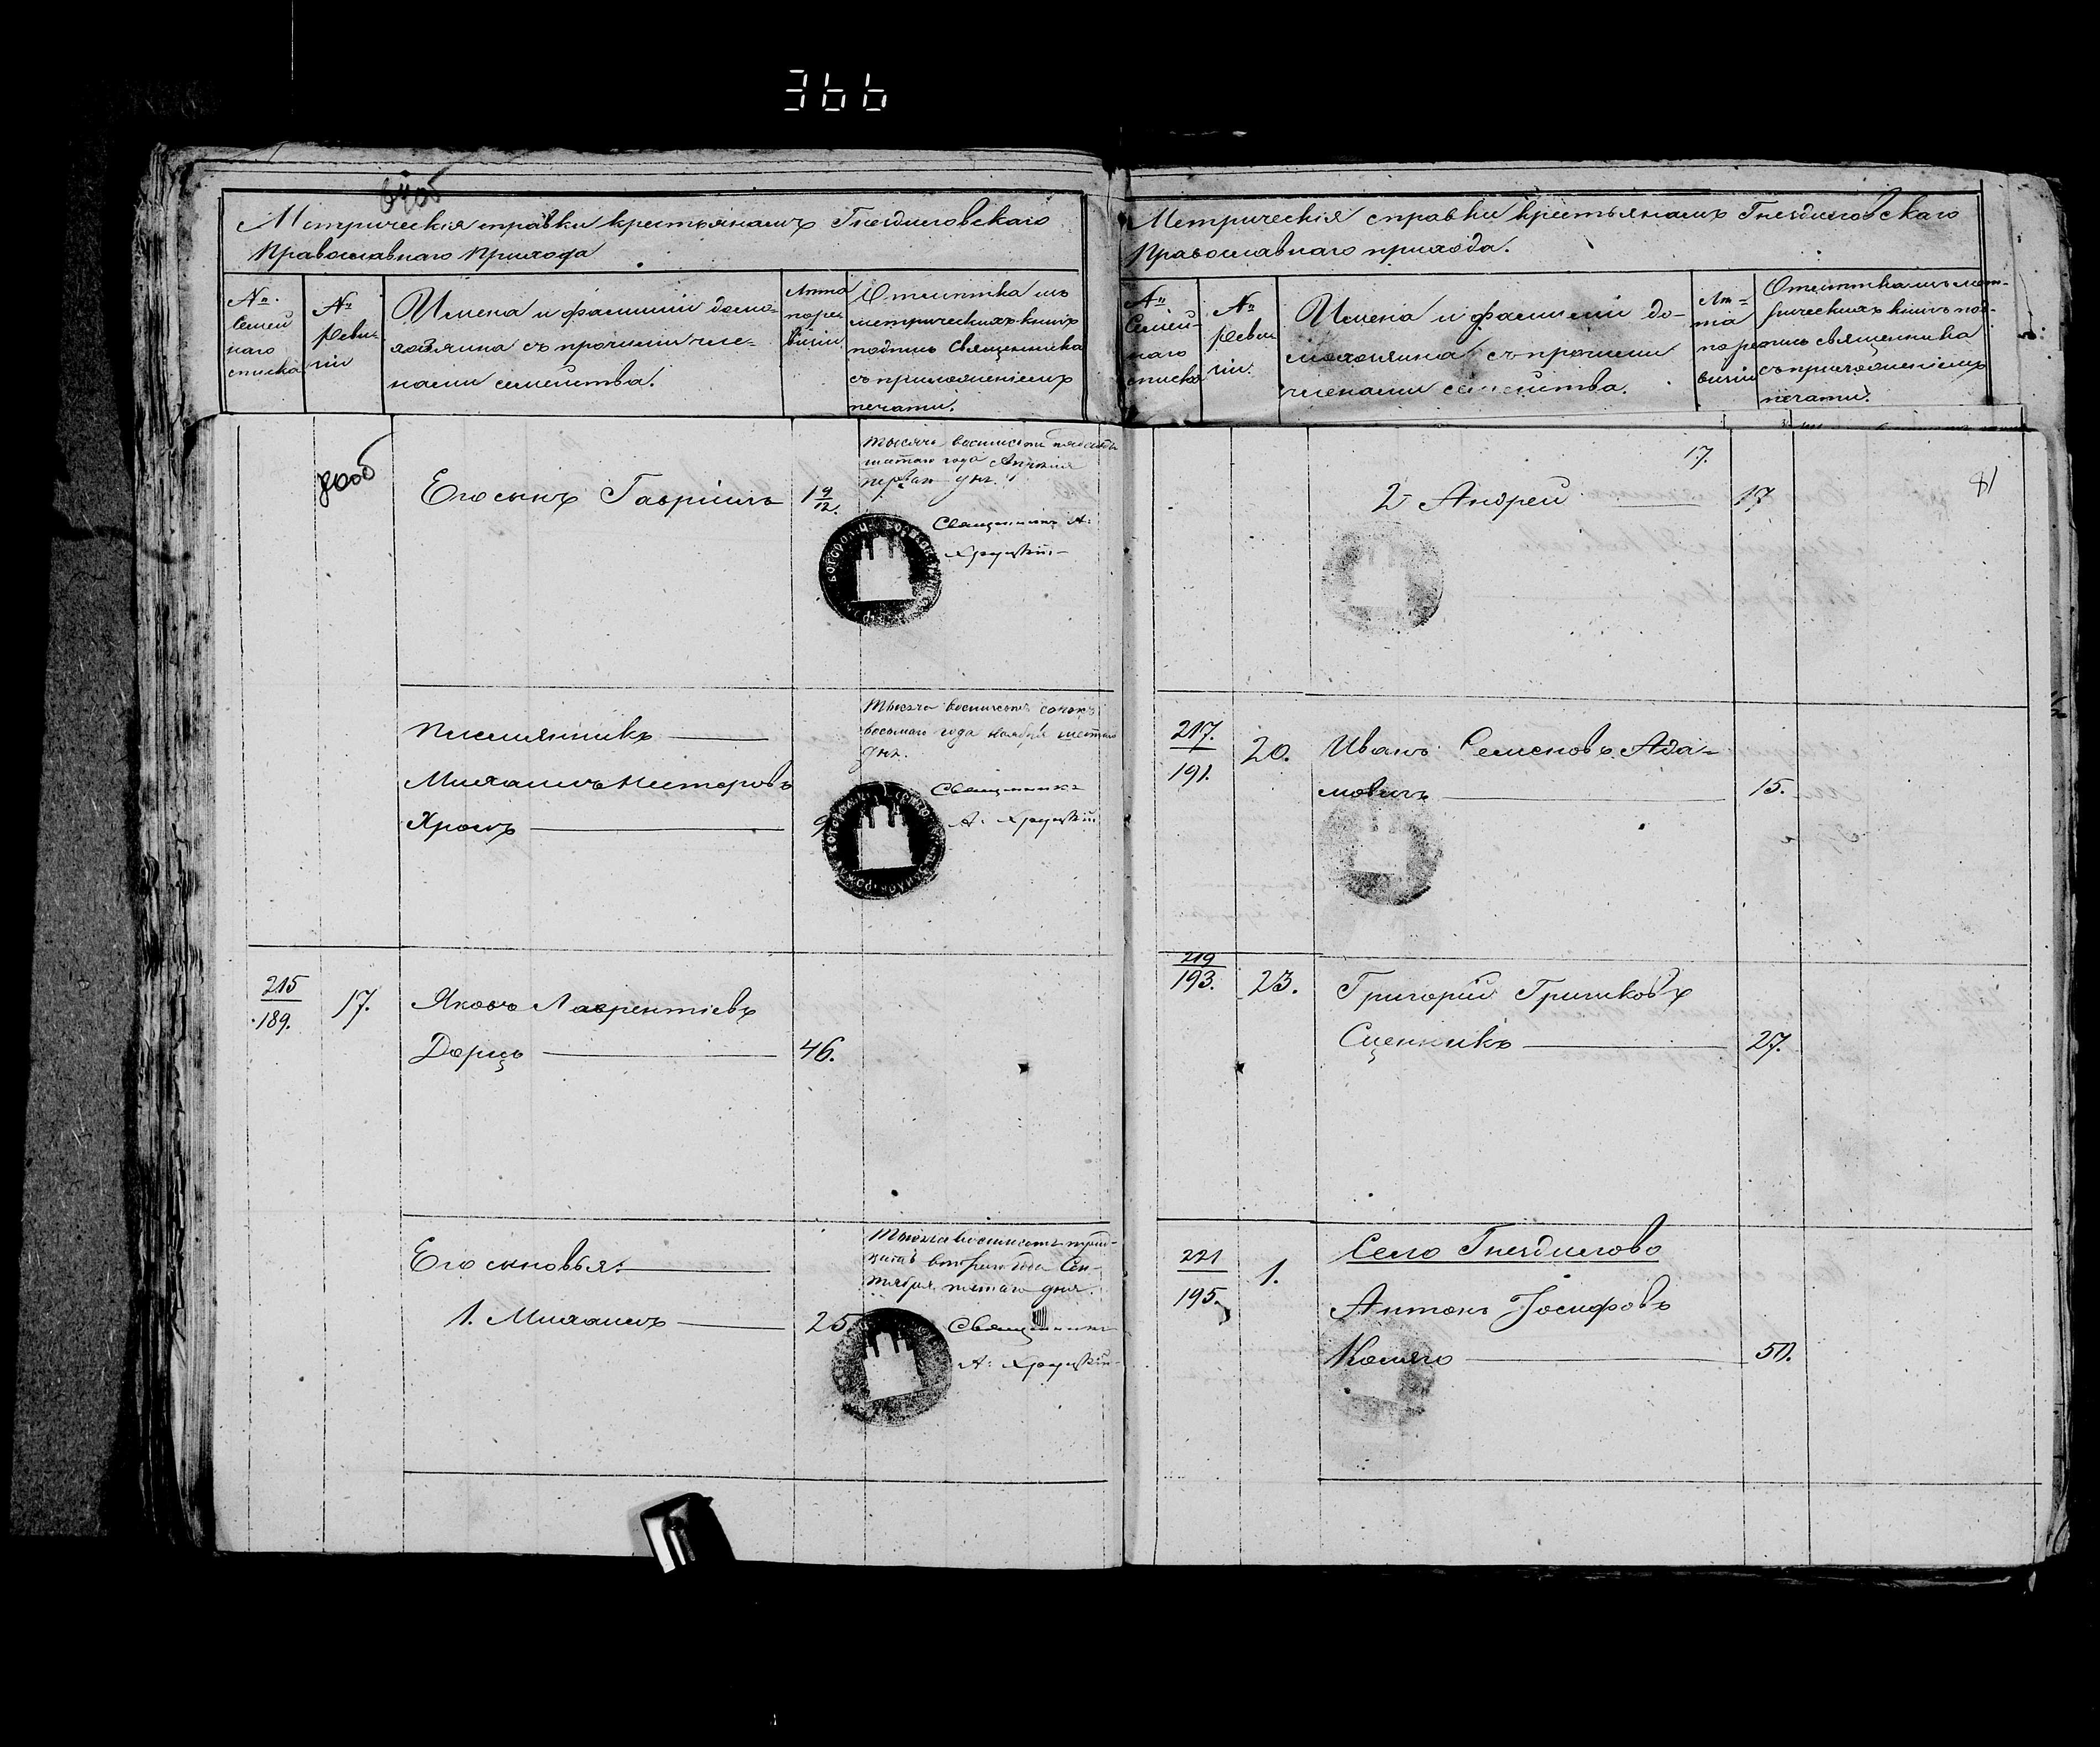 366
Метрическія справки крестьянамъ Гнездиловскаго
Православнаго Прихода
№.
Семей
наго
списка
№
реви-
зіи
Имена и фамиліи домо-
хозяина съ прочими чле-
нами семейства.
Лѣта
по реви
зіи
Отмѣтка изъ
метрическихъ книгъ
подпись Священника
съ приложеніемъ
печати.
80об
Его сынъ Гавріилъ
1 9/12.
тысяча восмисотъ пятьдесятъ
шестаго года Апрѣля
перваго дня.
Священникъ А:
Хруцкій
Племянникъ
Михаилъ Нестеровъ
Хромъ
9
Тысяча восмисотъ сорокъ
восьмаго года Ноября шестаго
дня.
Священникъ
А: Хруцкій
215
189.
17.
Яковъ Лаврентіевъ
46.
Его сыновья:
1. Михаилъ
25
Тысяча восмисотъ трид-
цать втораго года Сен-
тября пятаго дня.
Священникъ
А: Хруцкій
Метрическія справки крестьянамъ Гнездиловскаго
Православнаго прихода.
№
Семей-
наго
списка
№
реви
зіи.
Имена и фамиліи до-
мохозяина съ прочими
членами семейства.
Лѣ-
та
по ре
визіи
Отмѣтка изъ мет-
рическихъ книгъ под-
пись священника
съ приложеніемъ
печати.
17.
81
2 Андрей
17
217.
191.
20.
Иванъ Семеновъ Ада-
мовичъ
15.
219
193.
23.
Григорій Гришковъ
Сценникъ
27.
221
195.
1.
Село Гнездилово
Антонъ Іосифовъ
Коляго
50.